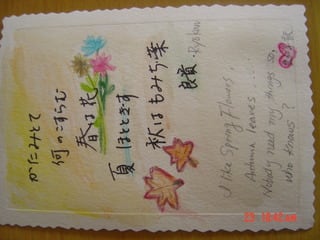 かたみとて
何のこすらむ
春は花
夏ほととぎす
秋はもみぢ葉
良寛
-Ryokan
I like Spring Flowers
Autumn leaves...
Nobody need my things so,
who knows?